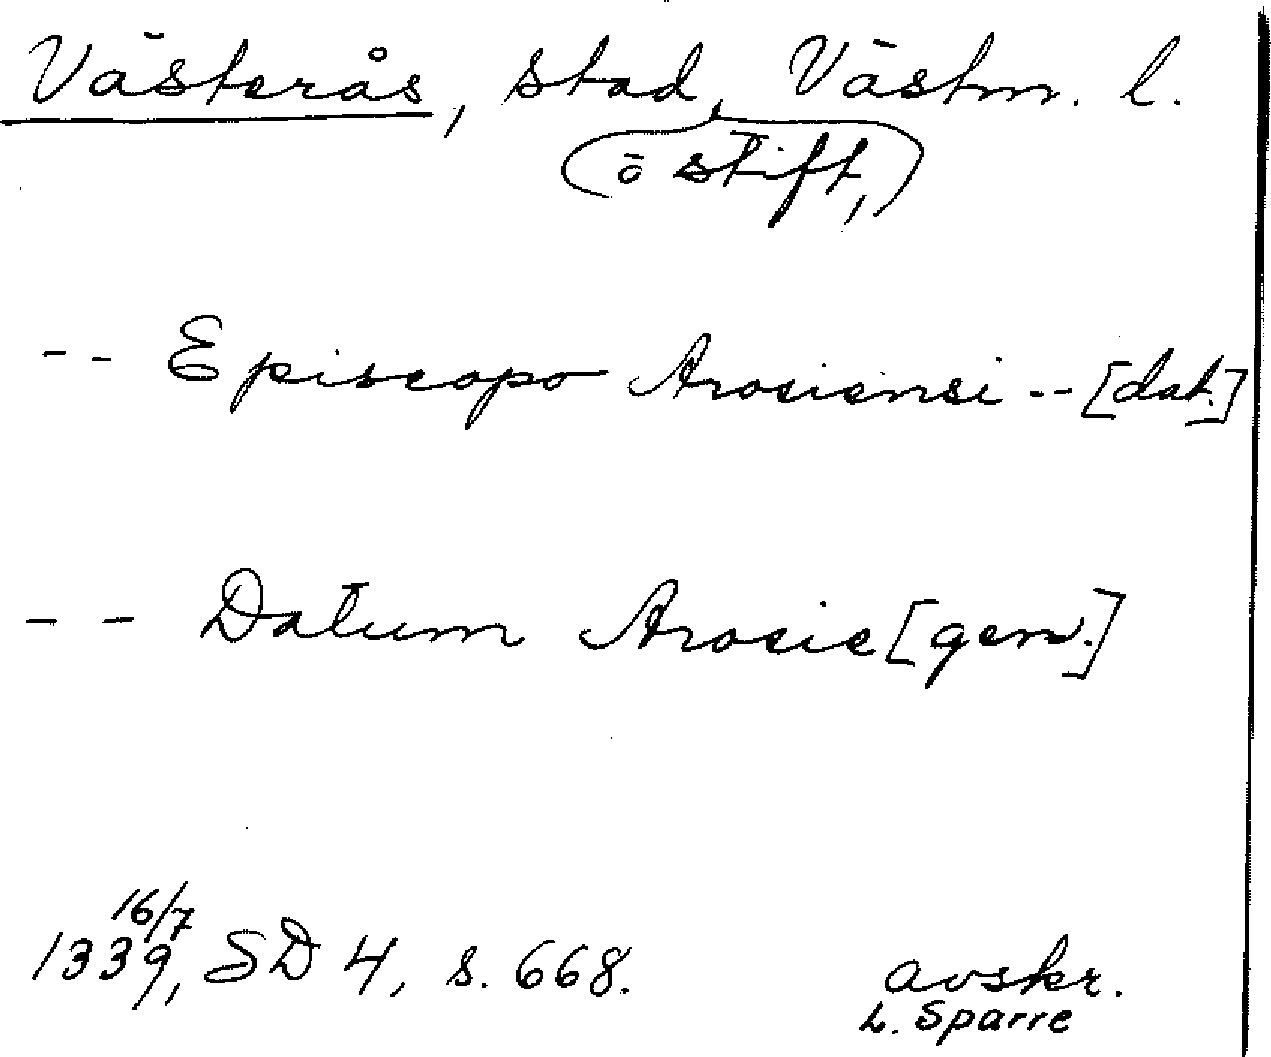 Västerås, stad, Västm. l.
(ö stift,)
-- Episcopo Arosiensi -- [dat.]
-- Datum Arosie [gen.]
16/7
1339, SD 4, s. 668.
avskr.
L. Sparre